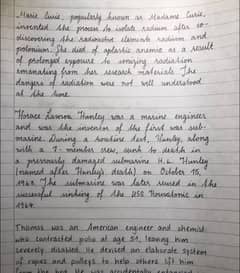 Marie Curie, popularly known as Madame Curie,
invented the process to isolate radium after co-
discovering the radioactive elements radium and
polonium. She died of aplastic anemia as a result
of prolonged exposure to ionizing radiation
emanating from her research materials. The
dangers of radiation were not well understood
at the time.
Horace Lawson Hunley was a marine engineer
and was the inventor of the first war sub-
marine. During a routine test, Hunley, along
with a 7-member crew, sunk to death in
a previously damaged submarine H.L. Hunley
(named after Hunley's death) on October 15,
1863. The submarine was later reused in the
successful sinking of the USS Housatonic in
1864.
Thomas was an American engineer and chemist
who contracted polio at age 51, leaving him
severely disabled. He devised an elaborate system
of ropes and pulleys to help others lift him
from the bed. He was accidentally